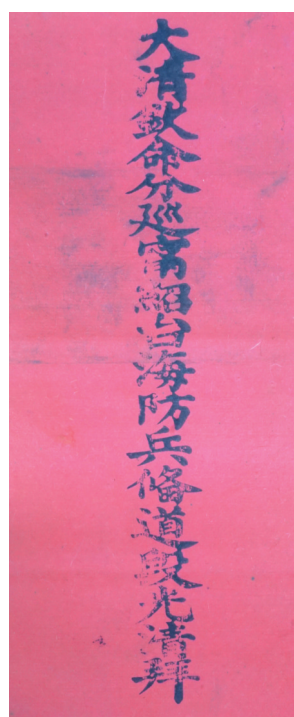 大清欽命分巡甯紹台海防兵備道段光清拜